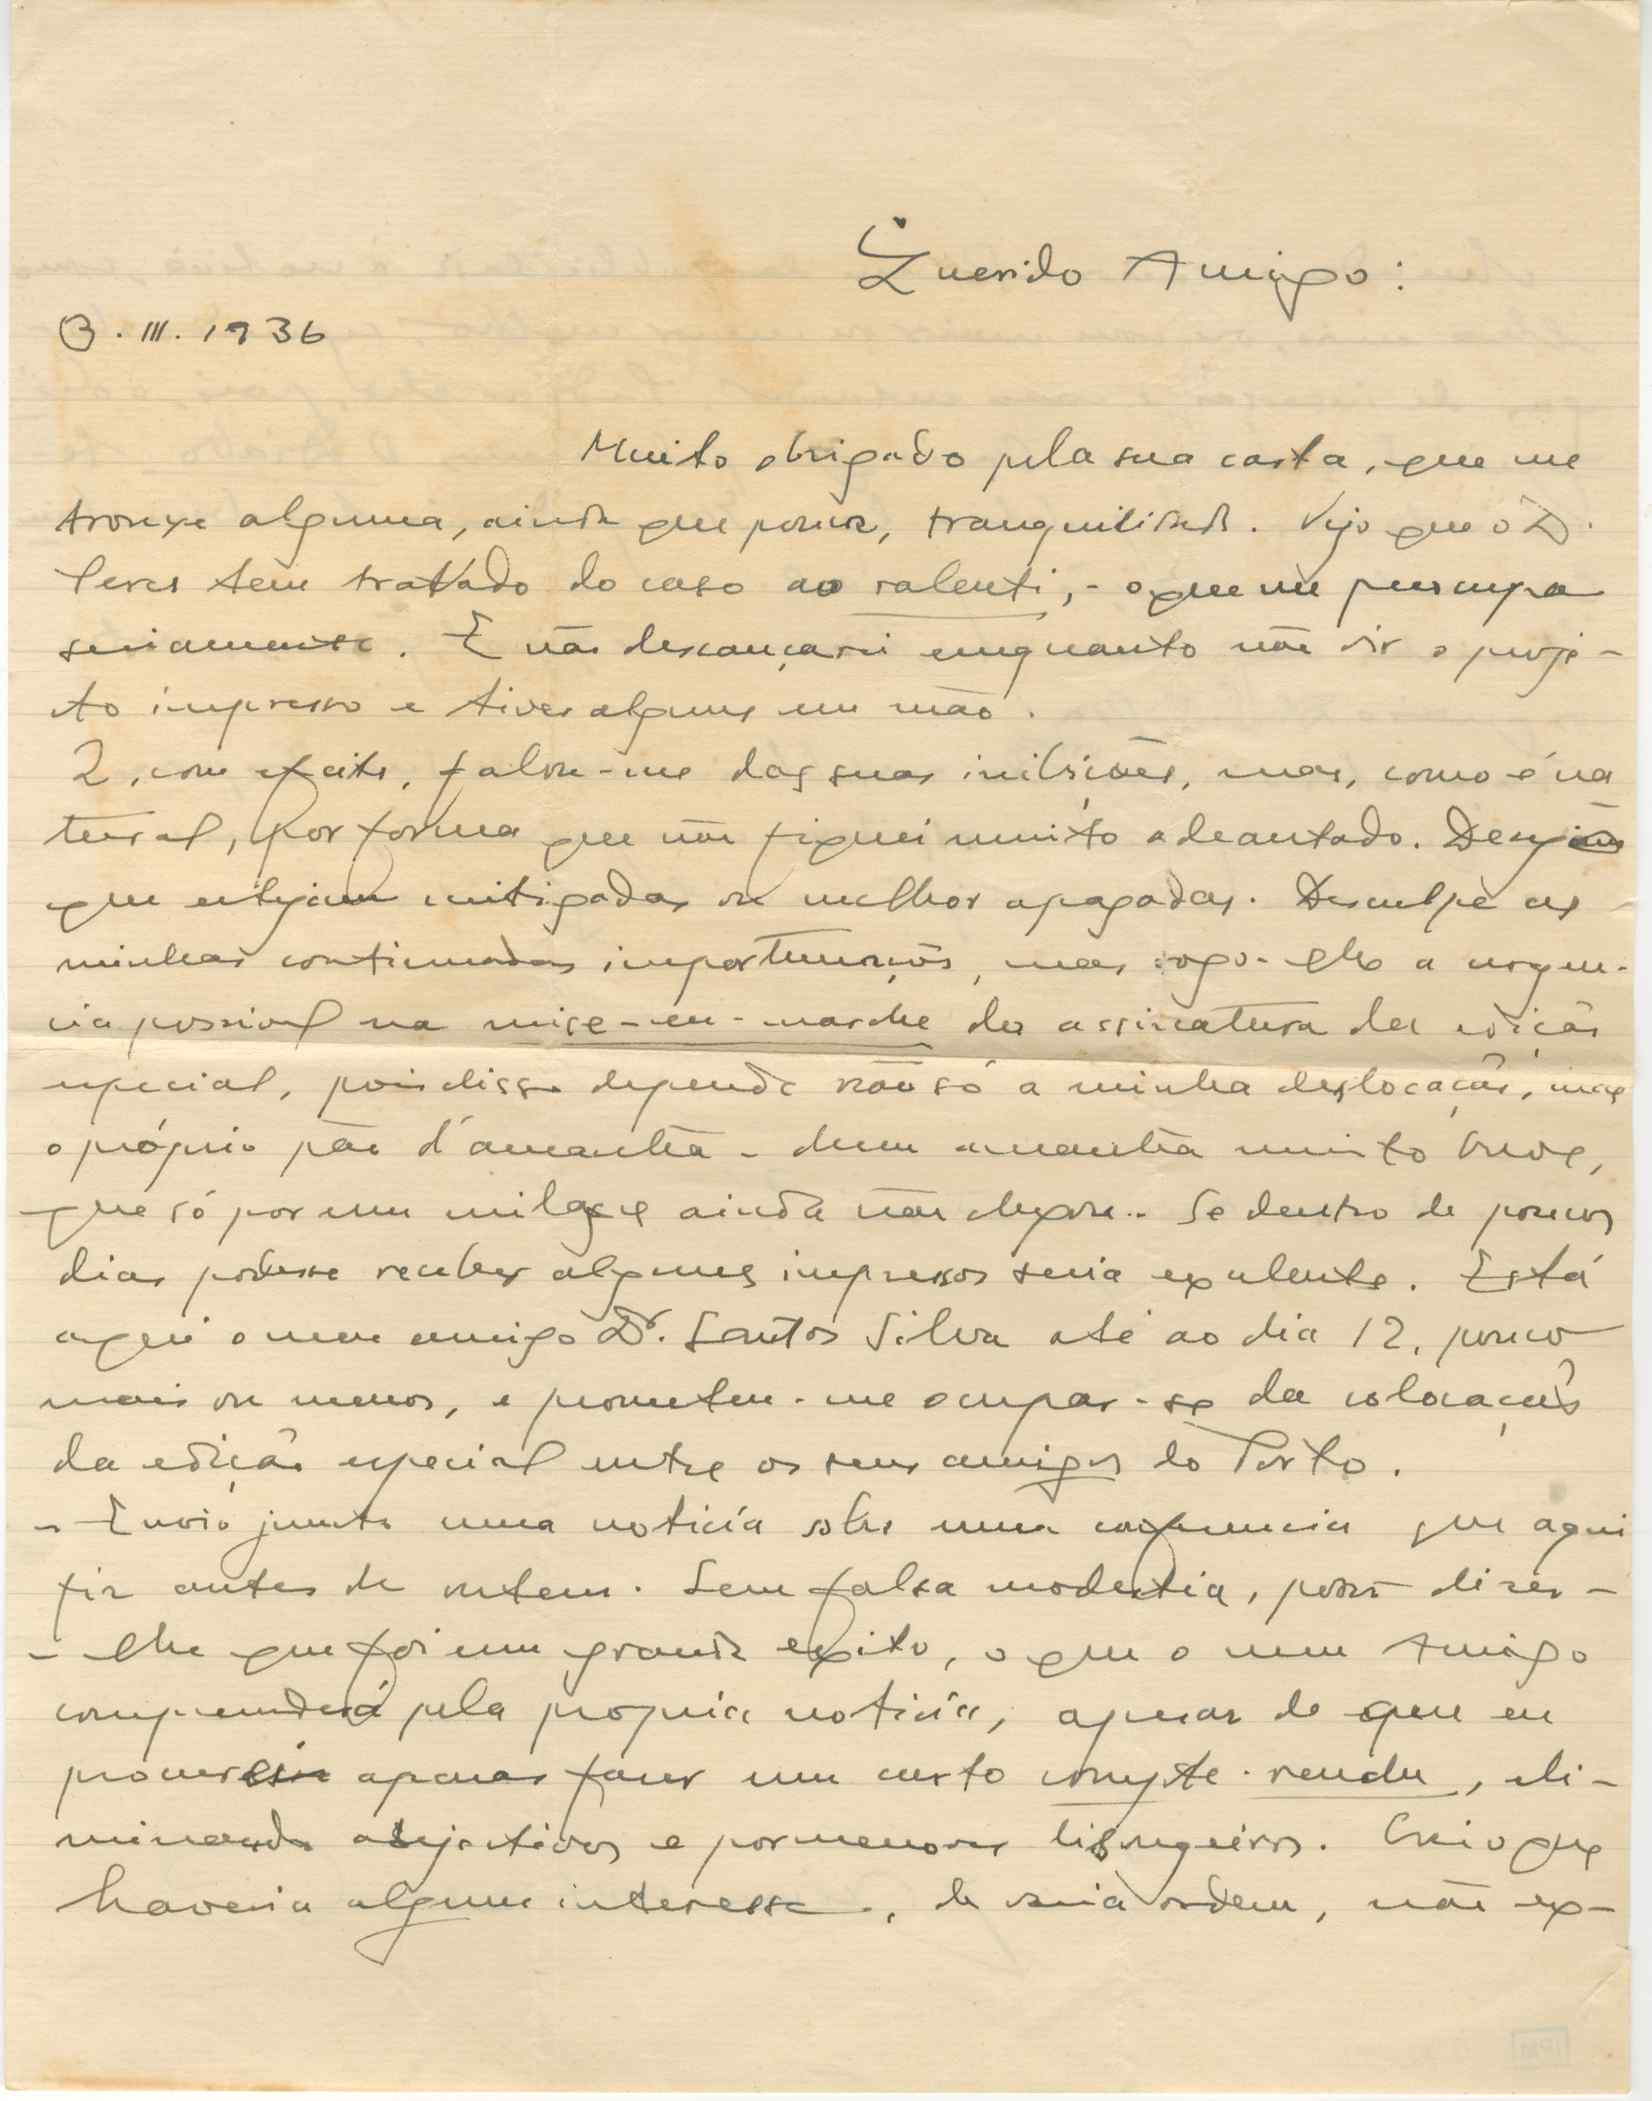 Querido Amigo:
3. III. 1936
Muito obrigado pela sua carta, que me
trouxe alguma, ainda que pouca, tranquilidade. Vejo que o D.
Peres tem tratado do caso ao ralenti, - o que me preocupa
seriamente. E não descançarei emquanto não vir o proje-
to impresso e tiver alguns em mão.
Q, com efeito, falou-me das suas inibições, mas, como é na
tural, por forma que não fiquei muito adeantado.
que estejam mitigadas ou melhor apagadas. Desculpe as
minhas continuadas importunações, mas rogo-lhe a urgen-
cia possivel na mise-en-marche da assinatura da edição
especial, pois disso depende não só a minha deslocação, mas
o próprio pão d'amanhã - dum amanhã muito breve,
que só por um milagre ainda não chegou.. Se dentro de poucos
dias podesse receber alguns impressos seria excelente. Está
aqui o meu amigo Dr. Santos Silva até ao dia 12, pouco
mais ou menos, e prometeu-me ocupar-se da colocação
da edição especial entre os seus amigos do Porto.
- Envio junto uma noticía sobre uma conferencia que aqui
fiz antes de ontem. Sem falsa modestia, posso dizer-
- lhe que foi um grande exito, o que o meu Amigo
compreenderá pela propria noticía, apesar de que eu
procurei apenas fazer um curto compte-rendu, eli-
minando adjectivos e pormenores lisongeiros. Creio que
haveria algum interesse, de vária ordem, não ex-